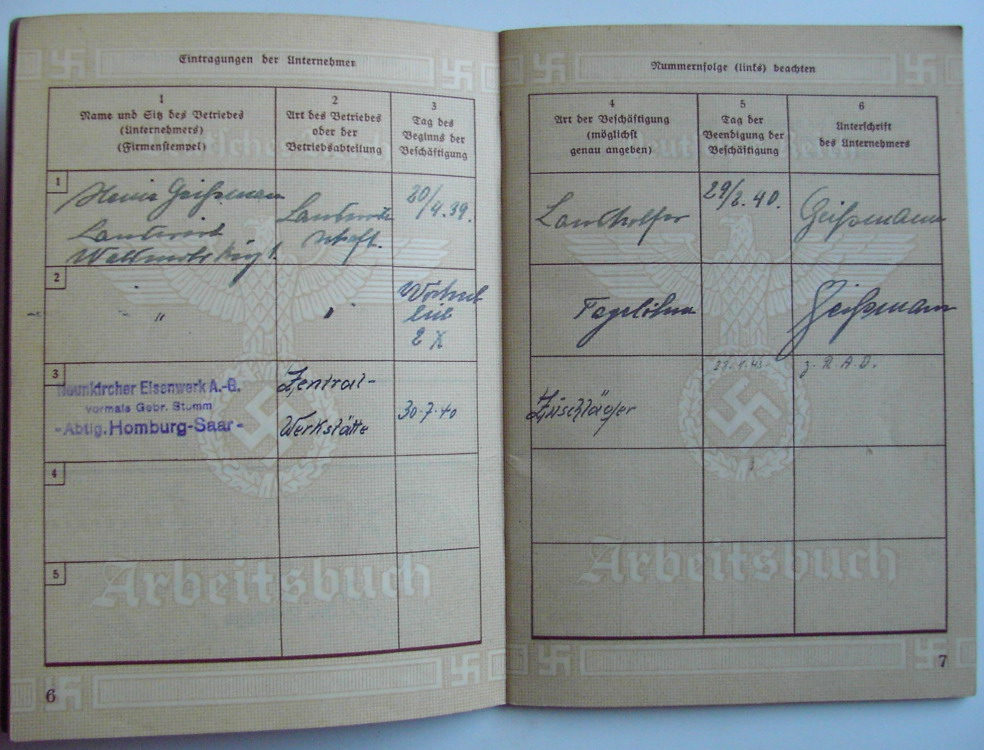 Eintragungen der Unternehmer
1
Name und Sitz des Betriebes
(Unternehmers)
(Firmenstempel)
2
Art des Betriebes
oder der
Betriebsabteilung
3
Tag des
Beginns der
Beschäftigung
1
Geißmann
Landwirt
Landwirt
schaft.
20/4.39.
2
"
"
2 X
3
Neunkircher Eisenwerk A.-G.
vormals Gebr. Stumm
-Abtlg. Homburg-Saar-
Zentral-
Werkstätte
30.7.40
4
5
Arbeitsbuch
6
Nummernfolge (links) beachten
4
Art der Beschäftigung
(möglichst
genau angeben)
5
Tag der
Beendigung der
Beschäftigung
6
Unterschrift
des Unternehmers
Deutsches Reich
Landhelfer
29/2.40.
Geißmann
Tagelöhner
Geißmann
z. R.A.D.
Zuschläger
Arbeitsbuch
7